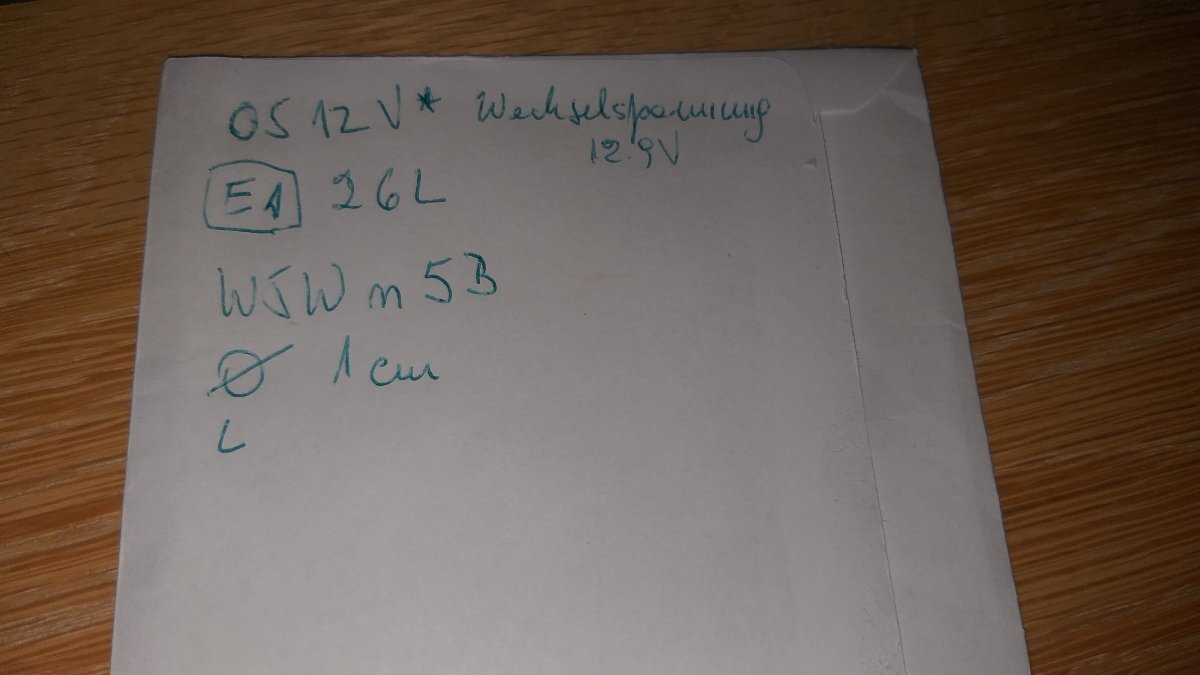 OS 12V* Wechselspannung
12.9V
E1 26L
W5W n 5B
Ø 1 cm
L